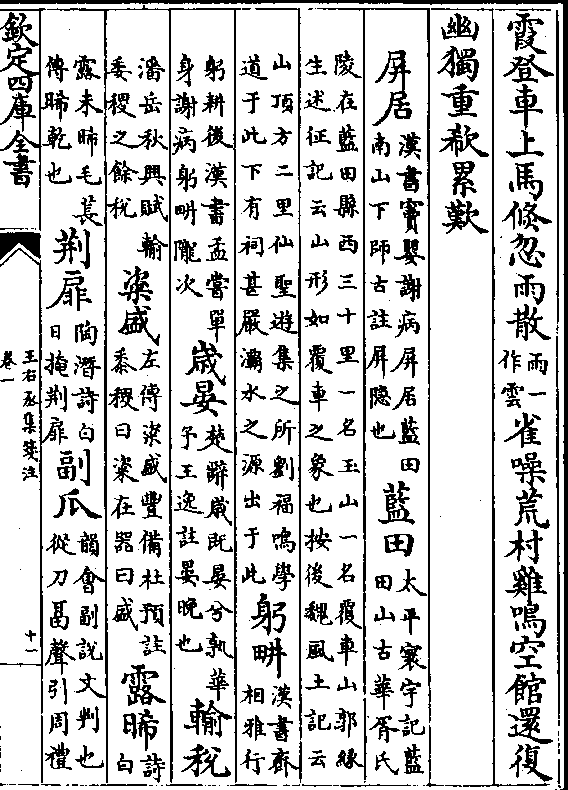 霞登車上馬倏忽雨散雨一作雲雀噪荒村雞鳴空館還復
幽獨重欷累歎
屏居漢書竇嬰謝病屏居藍田南山下師古註屏隱也藍田太平寰宇記藍田山古華胥氏
陵在藍田縣西三十里一名玉山一名覆車山郭緣
生述征記云山形如覆車之象也按後魏風土記云
山頂方二里仙聖遊集之所劉福鳴學道于此下有祠甚嚴灞水之源出于此躬畊漢書齊相雅行
躬耕後漢書孟嘗單身謝病躬畊隴次歲晏楚辭歲既晏兮孰華予王逸註晏晚也輸稅
潘岳秋興賦輸委稷之餘稅粢盛左傳粢盛豐備杜預註黍稷曰粢在器曰盛露晞詩白
露未晞毛萇傳晞乾也荆扉陶潛詩白日掩荆扉副瓜韻會副説文判也從刀畐聲引周禮
欽定四庫全書
王右丞集箋注
卷一
十一